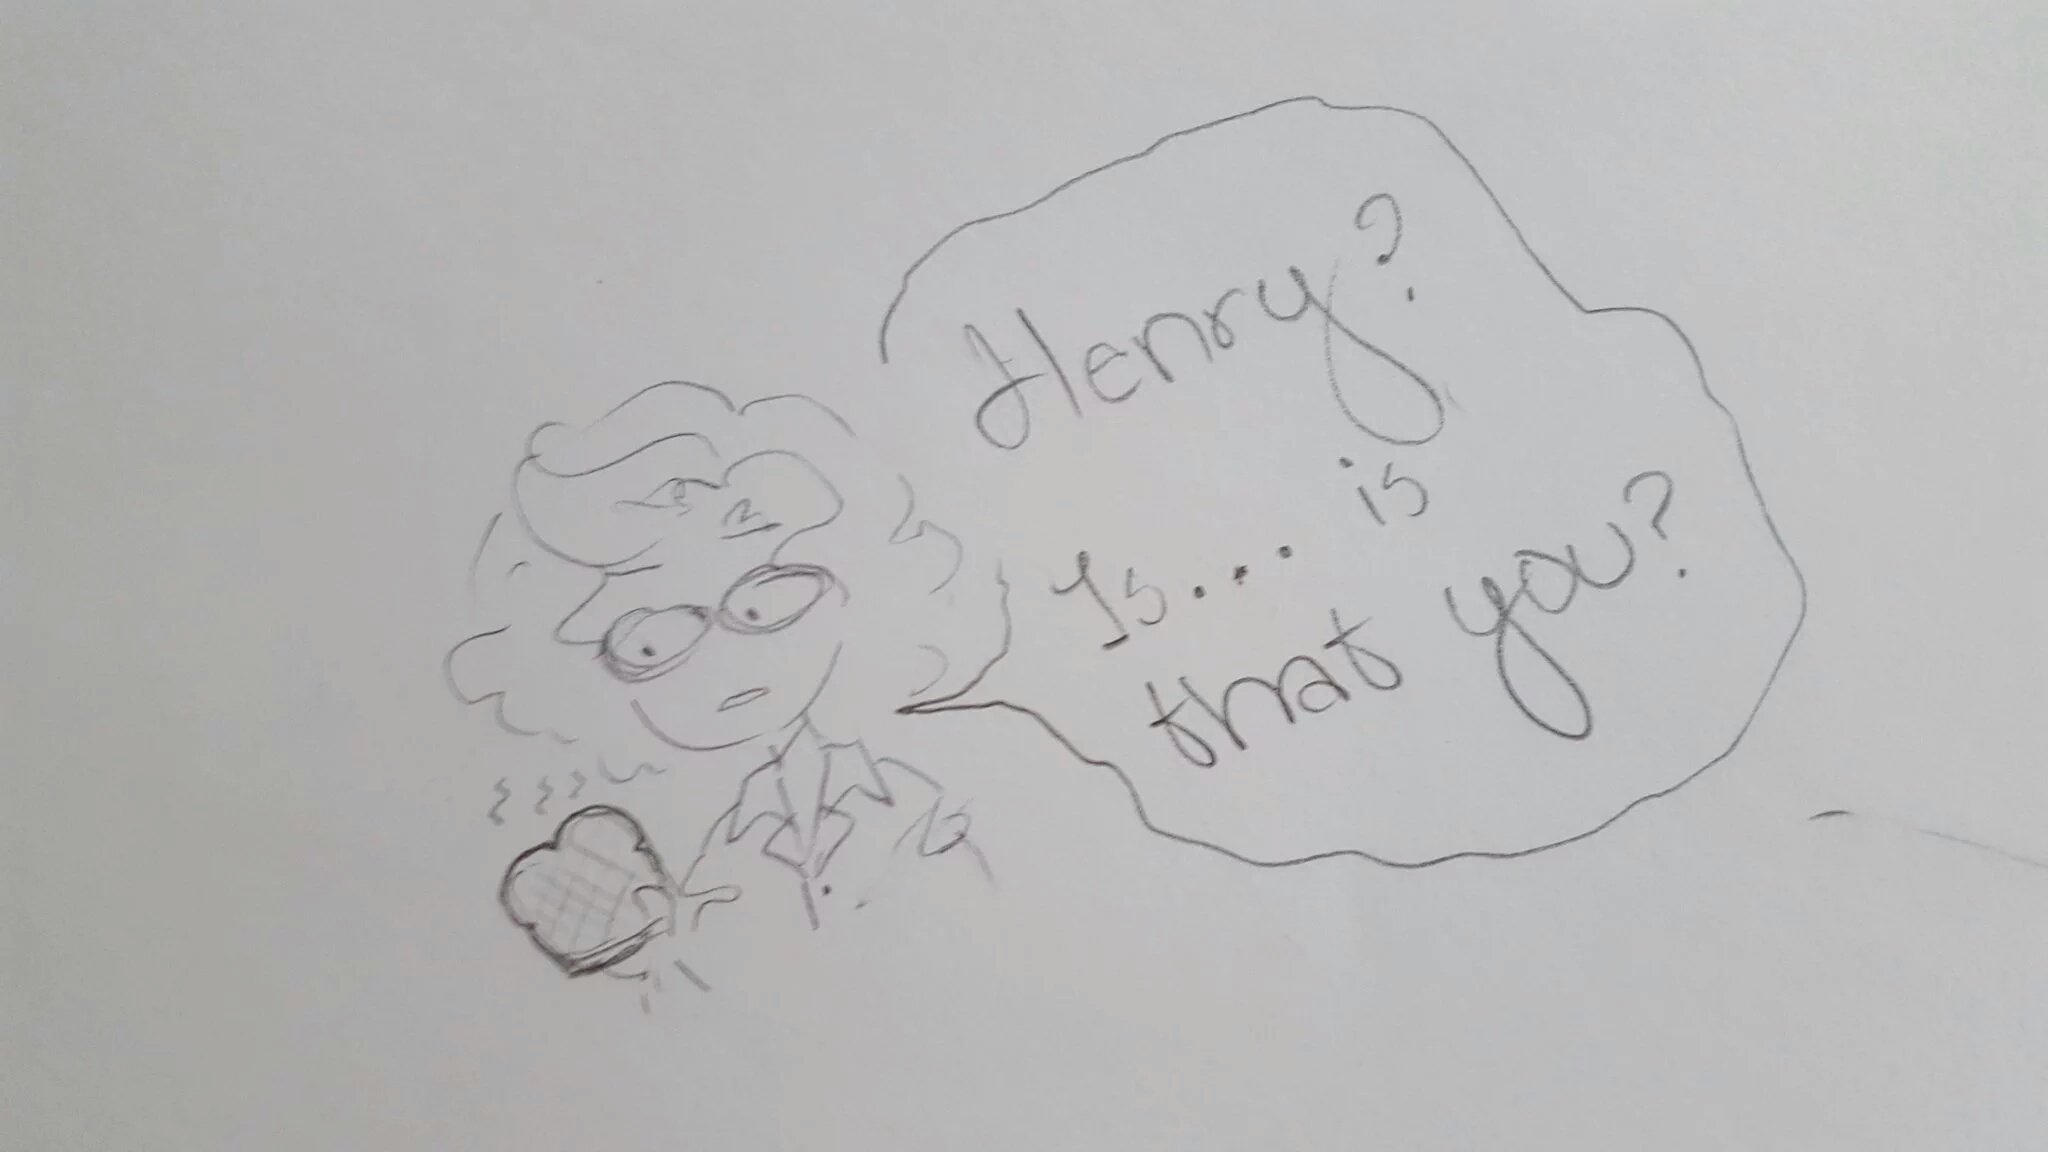 Henry?
Is... is
that you?